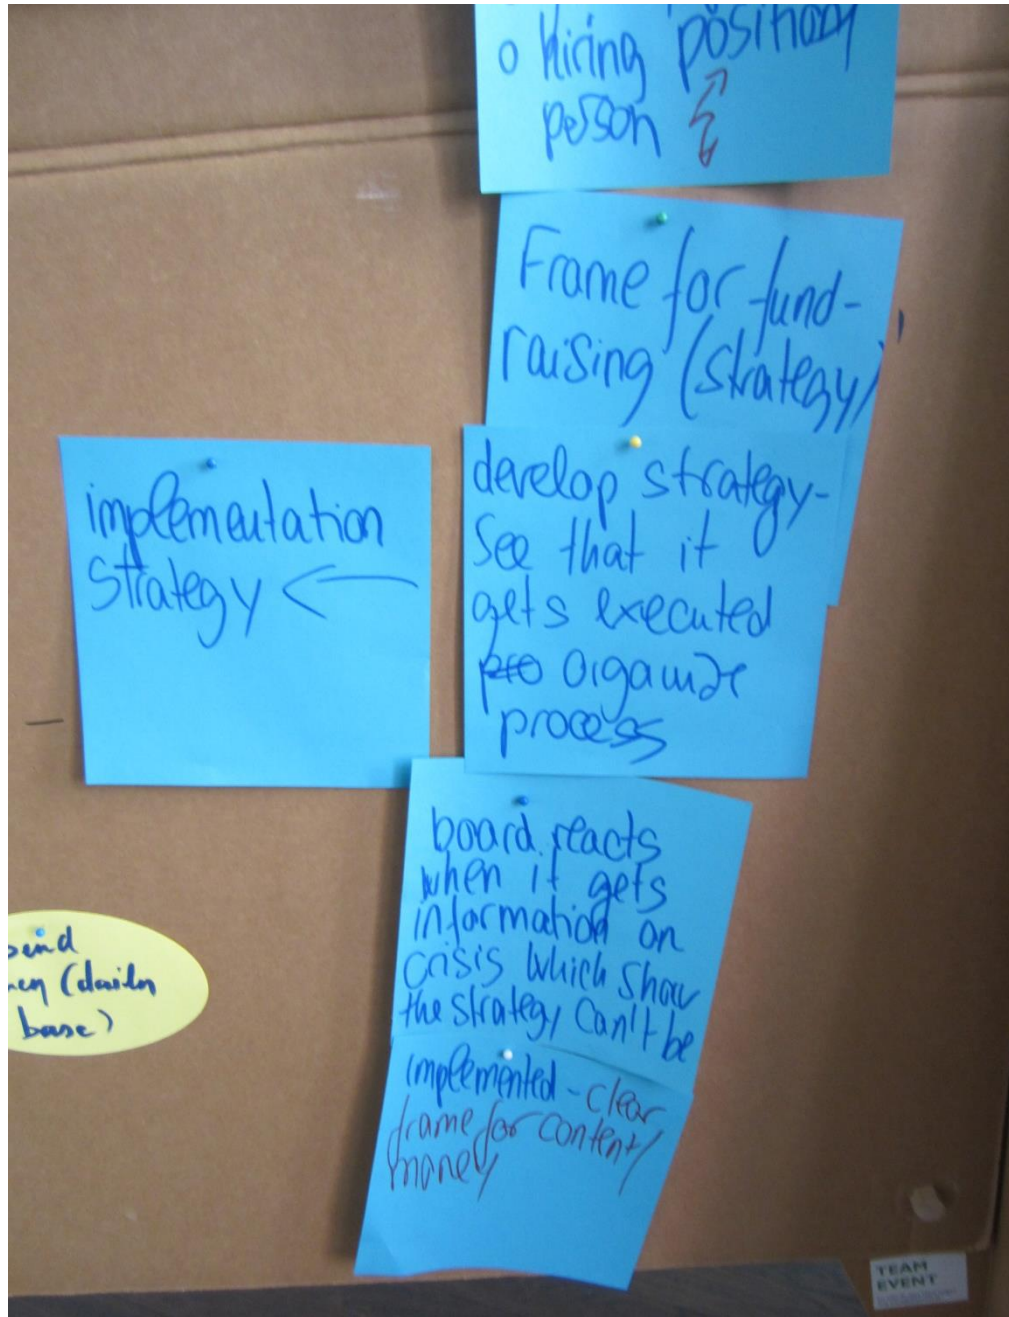 o hiring position
person
Frame for fund-
raising (strategy)
implementation
strategy ←
develop strategy-
See that it
gets executed
organize
process
board reacts
when it gets
information on
crisis which show
the strategy can't be
implemented - clear
frame for content/
money
(daily
base)
TEAM
EVENT